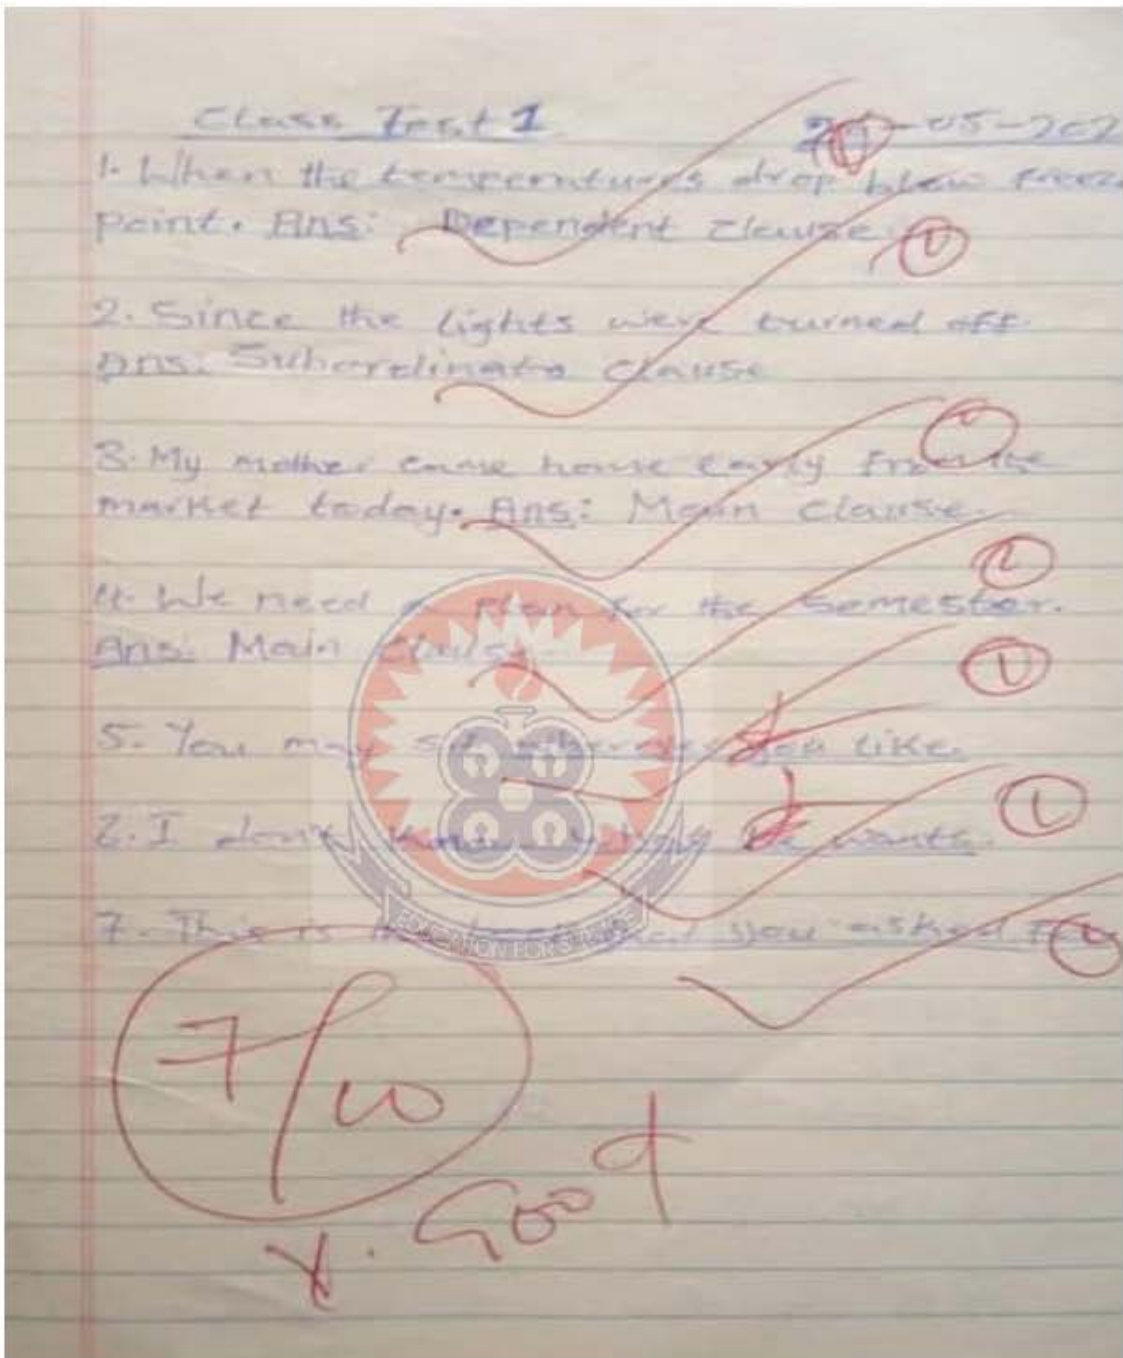 Class Test 1
-05-202
1. When the temperatures drop blew freez
point. Ans: Dependent Clause.
1
2. Since the lights were turned off.
Ans: Subordinate Clause
3. My mother came home early from the
market today. Ans: Main Clause.
4. We need a plan for the Semester.
Ans: Main Claus
1
5. You may sit wherever you like.
1
6. I don't know what he wants.
7. This is the that you asked For
EDUCATION FOR SERVICE
7/10
V. Good